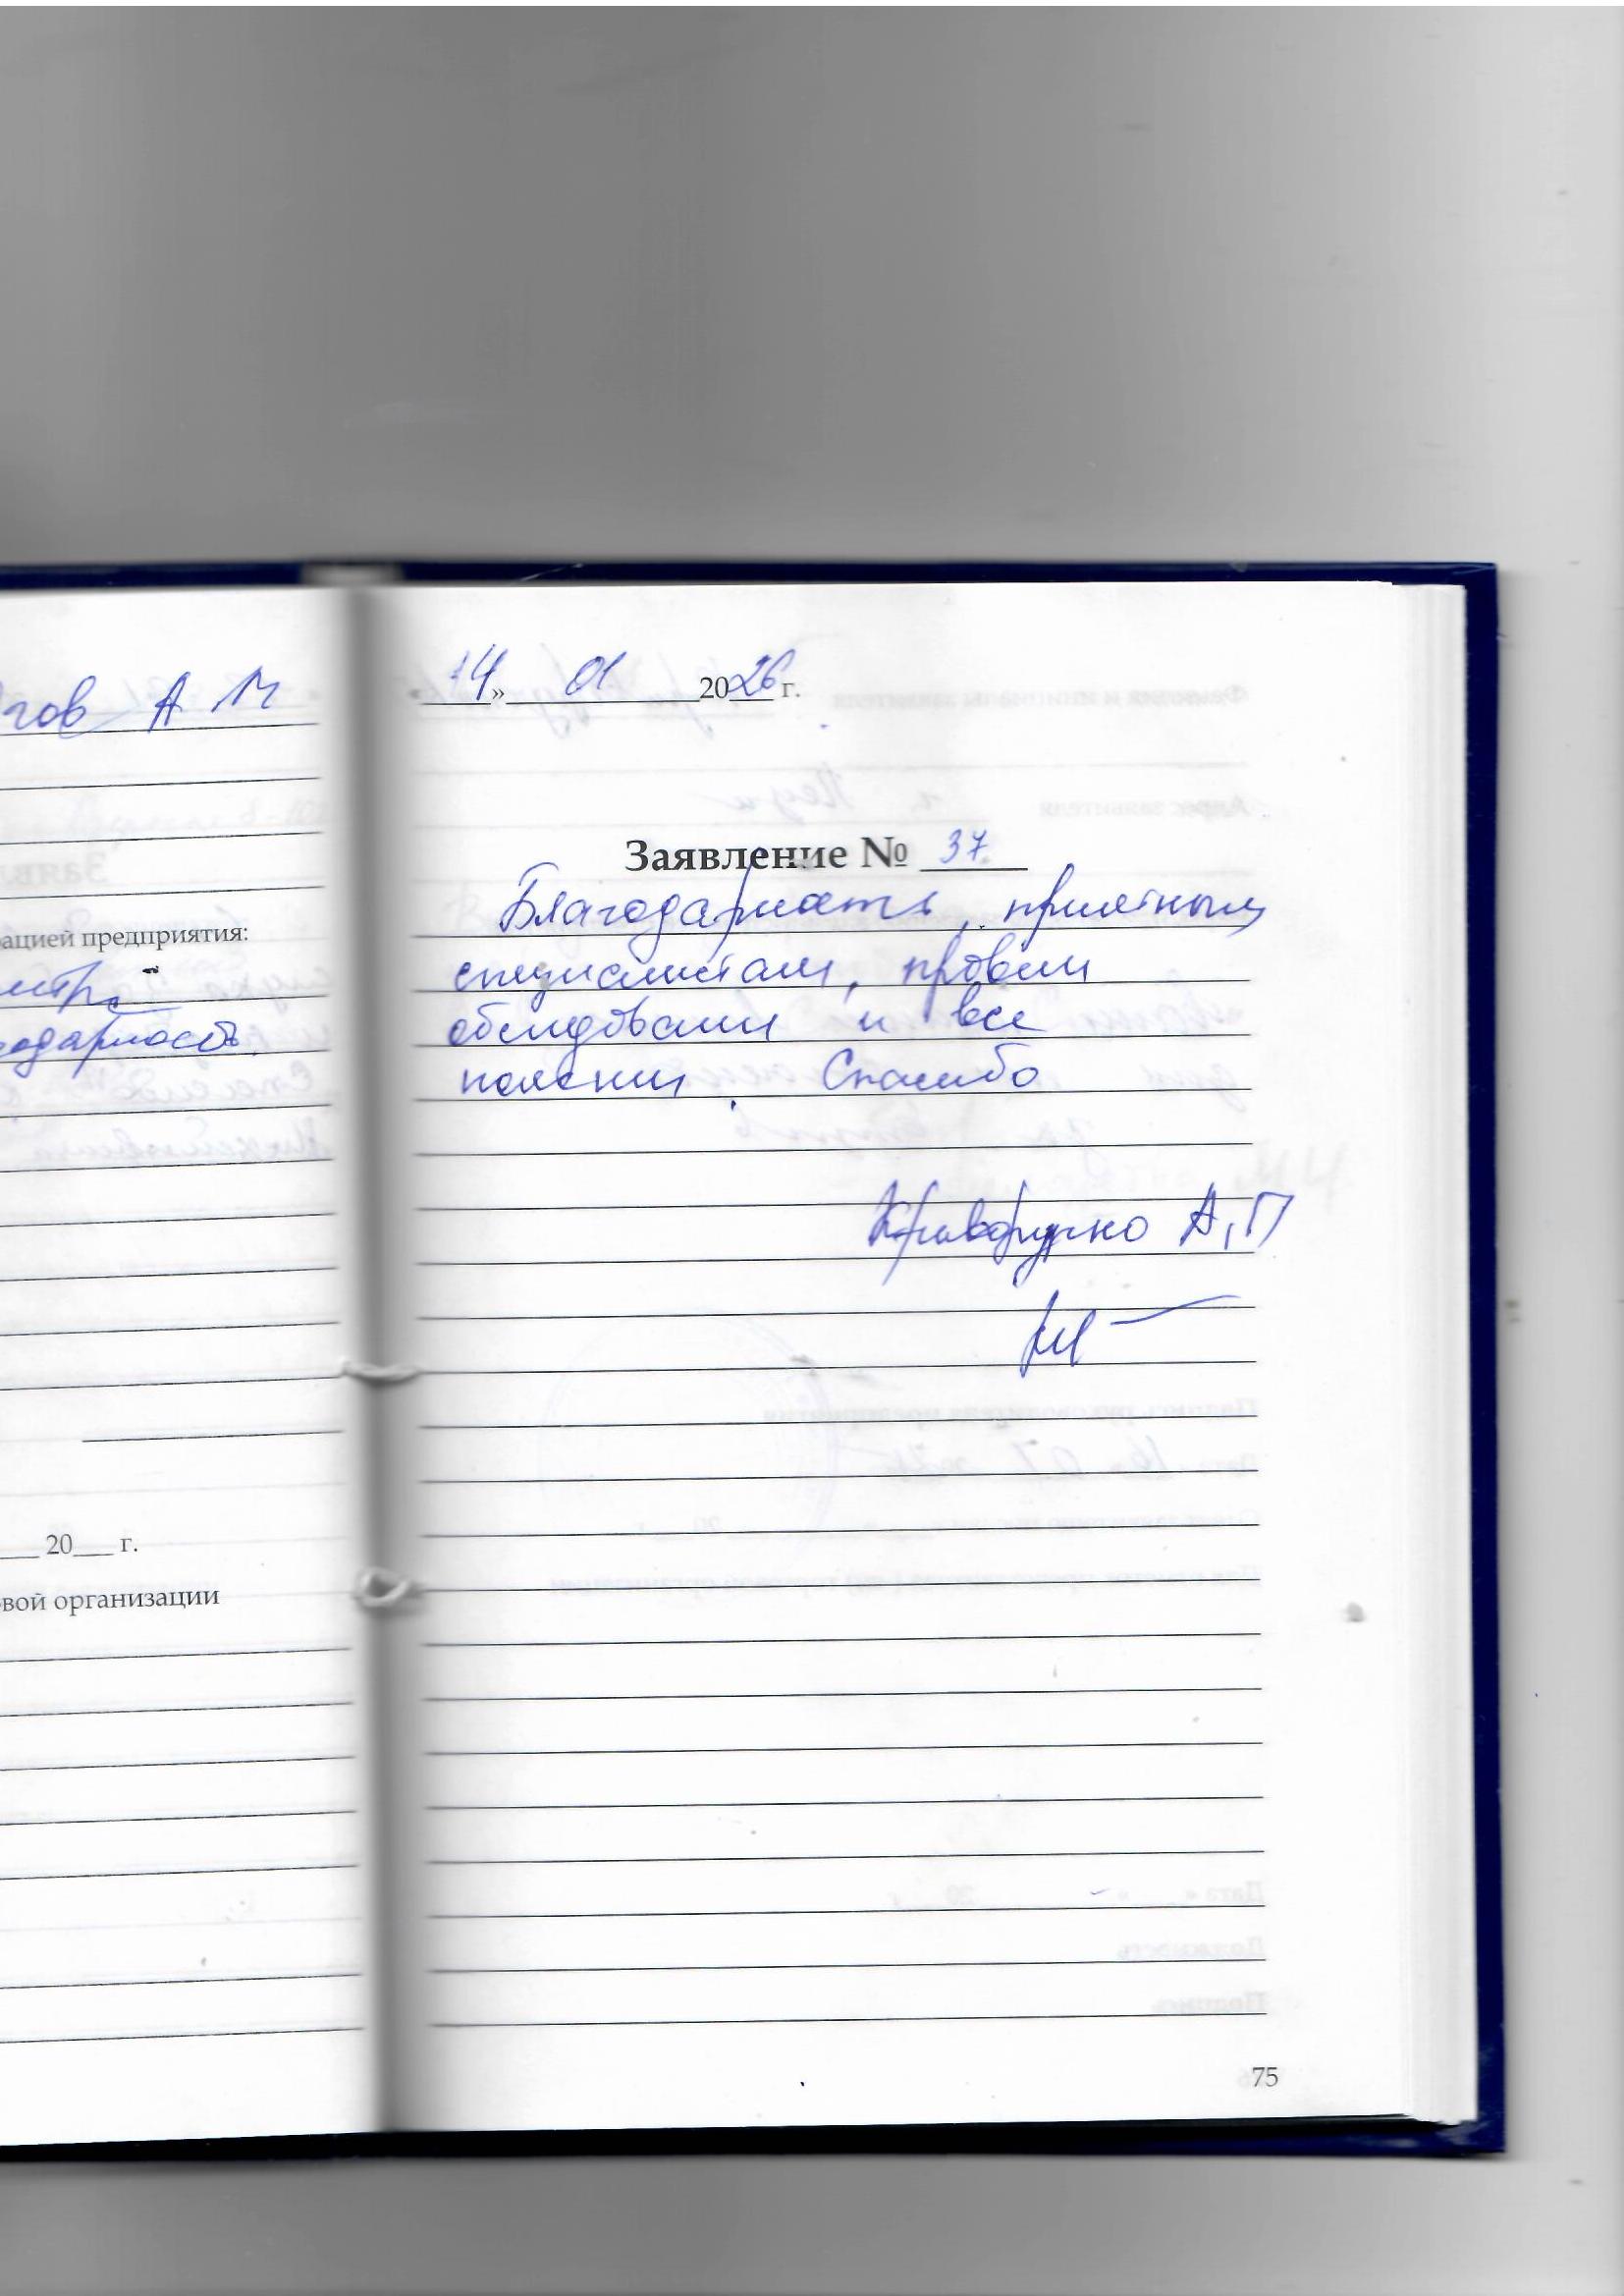 гов А М
ацией предприятия:
одарность
20___ г.
вой организации
14» 01 2026 г.
Заявление № 37
Благодарность, приятным
специалистам, провели
обследование и все
пояснили. Спасибо
Криворучко А, П
75